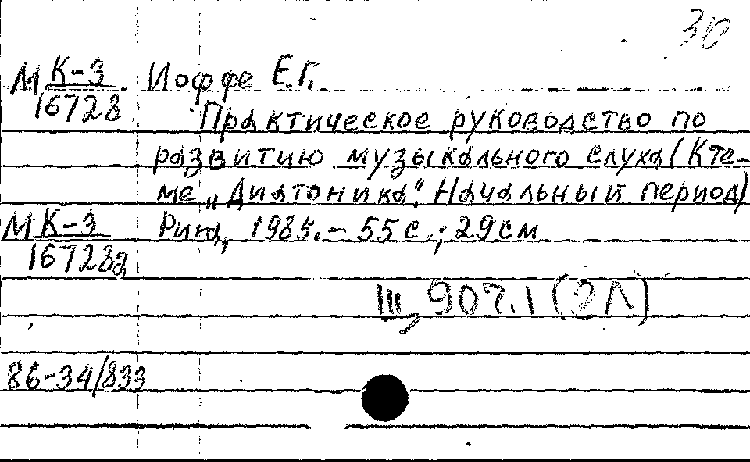 30
М К-3 Иоффе Е.Г.
16728
Практическое руководство по
развитию музыкального слуха (К те-
ме „Диатоника". Начальный период)
М К-3 Рига, 1985. - 55 с.; 29 см
16728а
III, 907.1 (2Л)
86-34/833